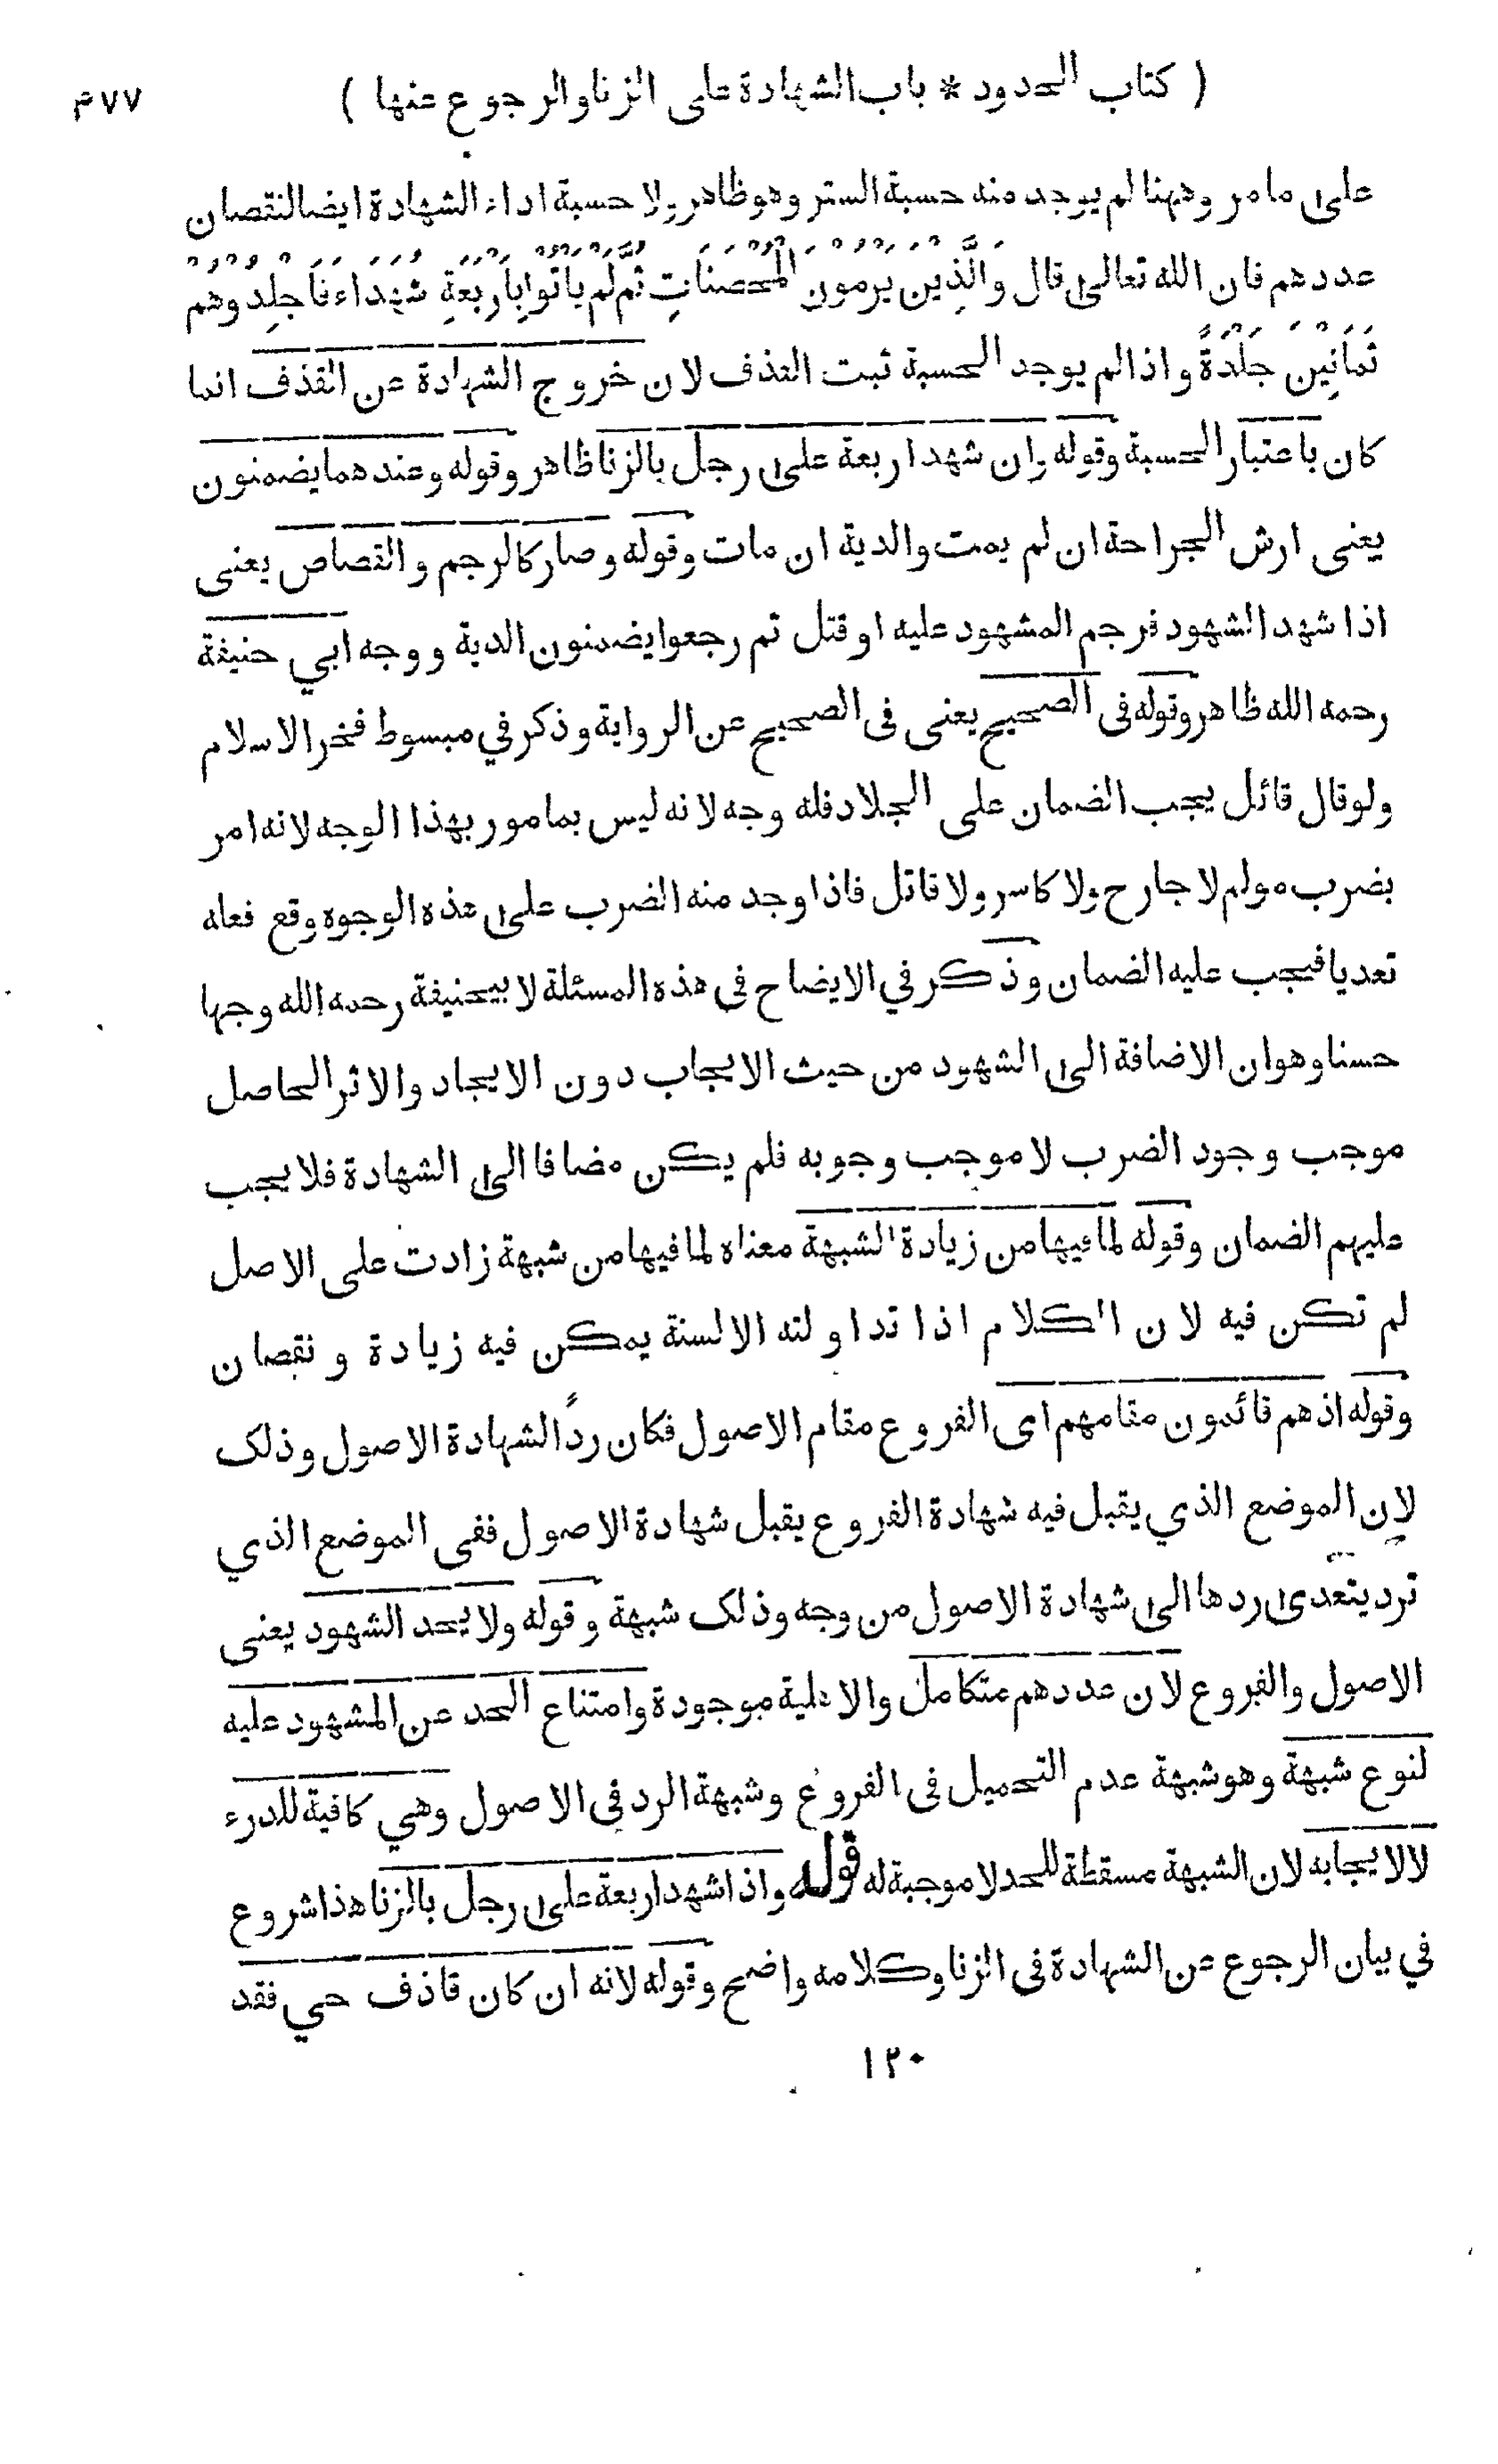 ( كتاب الحدود * باب الشهادة على الزنا والرجوع عنها ) ٤٧٧
على ما مر وههنا لم يوجد منه حسبة الستر وهو ظاهر ولا حسبة اداء الشهادة ايضا لنقصان
عددهم فان الله تعالى قال وَالَّذِيْنَ يَرْمُوْنَ الْمُحْصَنَاتِ ثُمَّ لَمْ يَأْتُوْا بِاَرْبَعَةِ شُهَدَاءَ فَاجْلِدُوْهُمْ
ثَمَانِيْنَ جَلْدَةً واذا لم يوجد الحسبة ثبت القذف لان خروج الشهادة عن القذف انما
كان باعتبار الحسبة وقوله وان شهد اربعة على رجل بالزنا ظاهر وقوله وعندهما يضمنون
يعنى ارش الجراحة ان لم يمت والدية ان مات وقوله وصار كالرجم والقصاص يعنى
اذا شهد الشهود فرجم المشهود عليه او قتل ثم رجعوا يضمنون الدية ووجه ابي حنيفة
رحمه الله ظاهر وقوله فى الصحيح يعنى فى الصحيح عن الرواية وذكر في مبسوط فخر الاسلام
ولو قال قائل يجب الضمان على الجلاد فله وجه لانه ليس بمامور بهذا الوجه لانه امر
بضرب مولم لا جارح ولا كاسر ولا قاتل فاذا وجد منه الضرب على هذه الوجوه وقع فعله
تعديا فيجب عليه الضمان وذكر في الايضاح فى هذه المسئلة لابيحنيفة رحمه الله وجها
حسنا وهو ان الاضافة الى الشهود من حيث الايجاب دون الايجاد والاثر الحاصل
موجب وجود الضرب لا موجب وجوبه فلم يكن مضافا الى الشهادة فلا يجب
عليهم الضمان وقوله لما فيها من زيادة الشبهة معناه لما فيها من شبهة زادت على الاصل
لم تكن فيه لان الكلام اذا تداولته الالسنة يمكن فيه زيادة ونقصان
وقوله اذ هم قائمون مقامهم اى الفروع مقام الاصول فكان رداً لشهادة الاصول وذلك
لان الموضع الذي يقبل فيه شهادة الفروع يقبل شهادة الاصول ففى الموضع الذي
ترد يتعدى ردها الى شهادة الاصول من وجه وذلك شبهة وقوله ولا يحد الشهود يعنى
الاصول والفروع لان عددهم متكامل والاهلية موجودة وامتناع الحد عن المشهود عليه
لنوع شبهة وهو شبهة عدم التحميل فى الفروع وشبهة الرد في الاصول وهي كافية للدرء
لا لايجابه لان الشبهة مسقطة للحد لا موجبة له قوله واذا شهد اربعة على رجل بالزنا هذا شروع
في بيان الرجوع عن الشهادة فى الزنا وكلامه واضح وقوله لانه ان كان قاذف حي فقد
١٢٠